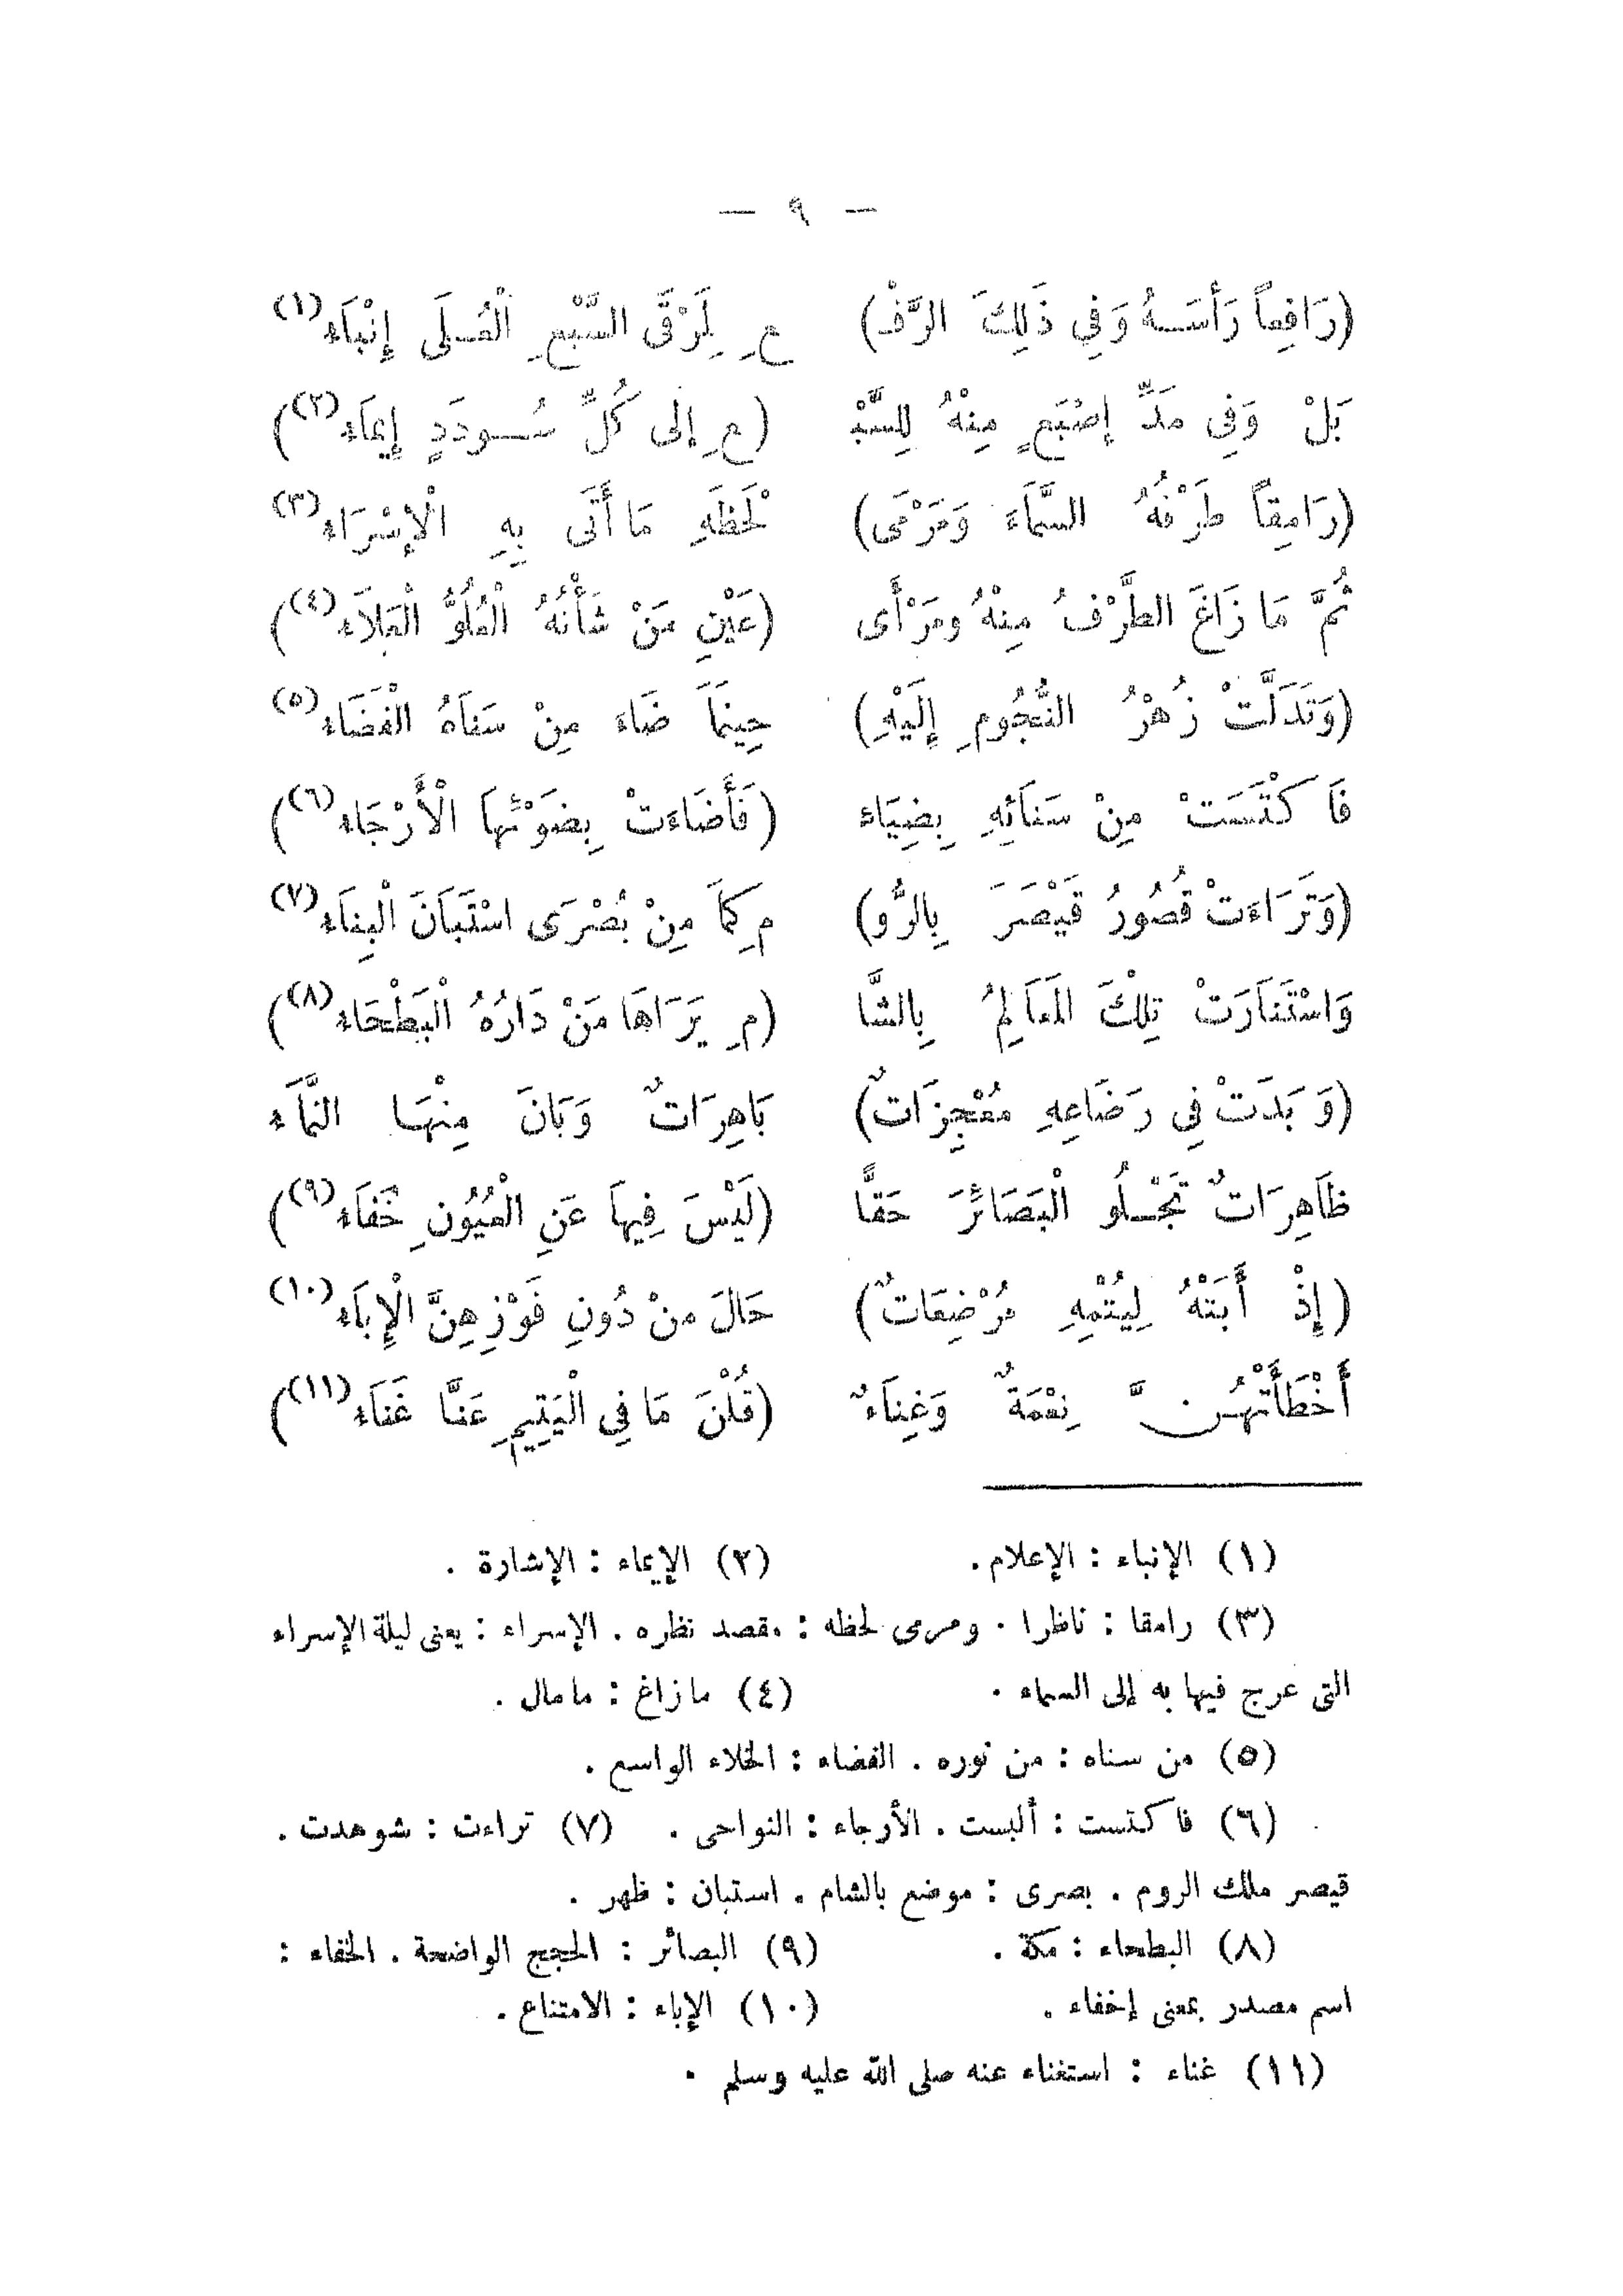 — ٩ —
(رَافِعاً رَأْسَهُ وَفِي ذَلِكَ الرَّفْ) عِ لِمَرْقَى السَّبْعِ الْعُلَى إِنْبَاَء(١)
بَلْ وَفِى مَدِّ إِصْبَعٍ مِنْهُ لِلسَّبْ (عِ إِلَى كُلِّ سُودَدٍ إِيمَاَء(٢))
(رَامِقاً طَرْفُهُ السَّمَاءَ وَمَرْمَى) لَحْظِهِ مَا أَتَى بِهِ الْإِسْرَاء(٣)
ثُمَّ مَا زَاغَ الطَّرْفُ مِنْهُ ومَرْأَى (عَيْنِ مَنْ شَأْنُهُ الْعُلُوُّ الْعَلَاَء(٤))
(وَتَدَلَّتْ زُهْرُ النُّجُومِ إِلَيْهِ) حِينَمَا ضَاءَ مِنْ سَنَاهُ الْفَضَاء(٥)
فَاكْتَسَتْ مِنْ سَنَائِهِ بِضِيَاء (فَأَضَاءَتْ بِضَوْئِهَا الْأَرْجَاء(٦))
(وَتَرَاءَتْ قُصُورُ قَيْصَرَ بِالرُّو) مِ كَمَا مِنْ بُصْرَى اسْتَبَانَ الْبِنَاَء(٧)
وَاسْتَنَارَتْ تِلْكَ المَعَالِمُ بِالشَّا (مِ يَرَاهَا مَنْ دَارُهُ الْبَطْحَاء(٨))
(وَبَدَتْ فِى رَضَاعِهِ مُعْجِزَاتٌ) بَاهِرَاتٌ وَبَانَ مِنْهَا النَّمَاَء
ظَاهِرَاتٌ تَجْلُو الْبَصَائِرَ حَقًّا (لَيْسَ فِيهَا عَنِ الْعُيُونِ خَفَاَء(٩))
(إِذْ أَبَتْهُ لِيُتْمِهِ مُرْضِعَاتٌ) حَالَ مِنْ دُونِ فَوْزِهِنَّ الْإِبَاَء(١٠)
أَخْطَأَتْهُنَّ نِعْمَةٌ وَغِنَاَءٌ (قُلْنَ مَا فِي الْيَتِيمِ عَنَّا غَنَاَء(١١))
(١) الإنباء : الإعلام. (٢) الإيماء : الإشارة .
(٣) رامقا : ناظرا . ومرمى لحظه : مقصد نظره . الإسراء : يعنى ليلة الإسراء
التى عرج فيها به إلى السماء . (٤) مازاغ : مامال .
(٥) من سناه : من نوره . الفضاء : الخلاء الواسع .
(٦) فاكتست : ألبست . الأرجاء : النواحى . (٧) تراءت : شوهدت .
قيصر ملك الروم . بصرى : موضع بالشام . استبان : ظهر .
(٨) البطحاء : مكة . (٩) البصائر : الحجج الواضحة . الخفاء :
اسم مصدر بمعنى إخفاء . (١٠) الإباء : الامتناع .
(١١) غناء : استغناء عنه صلى الله عليه وسلم .